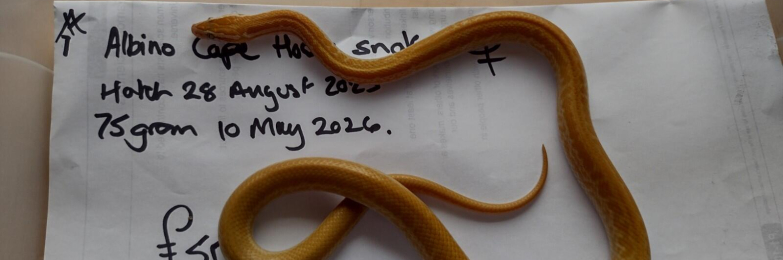 Albino Cape Ho snak
Hatch 28 August 2025
75gram 10 May 2026.
£50